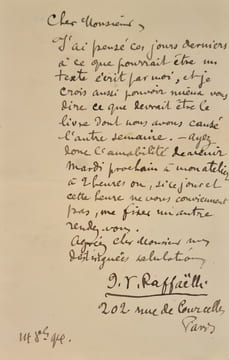 Cher Monsieur,
J'ai pensé ces jours derniers
à ce que pourrait être un
texte écrit par moi, et je
crois aussi pouvoir mieux vous
dire ce que devrait être le
livre dont nous avons causé
l'autre semaine. — Ayez
donc l'amabilité de venir
Mardi prochain à mon atelier
à 2 heures ou, si ce jour et
cette heure ne vous conviennent
pas, me fixer un autre
rendez vous.
Agréez cher Monsieur mes
distinguées salutations
J. F. Raffaëlli
202 rue de Courcelles
Paris